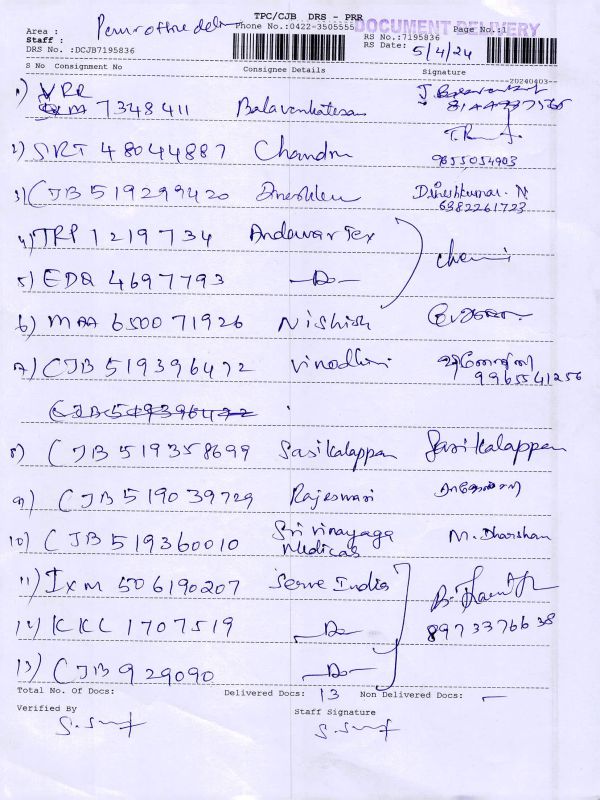 TPC/CJB DRS - PRR
Phone No.:0422-3505555
DOCUMENT DELIVERY
Area :
Staff :
DRS No. :DCJB7195836
RS No.:7195836
Page No.:1
RS Date: 5/4/24
S No Consignment No Consignee Details Signature
20240403--
1) PRR
7348411 Balavenkatesan
2) SRT 48044887 Chandra 9655054903
3) CJB 519299420 Dineshkumar. N
6382261723
4) TRP 1219734 Andavar Tex
5) EDQ 4697793 -Do-
6) MAA 650071926 Nishish
7) CJB 519396472 Vinodhini
9965541256
CJB 519396472
8) CJB 519358699 Sasikalappan Sasikalappan
9) CJB 519039729 Rajeswari
10) CJB 519360010 Sri Vinayaga Medicas M. Dharshan
11) IXM 506190207 Serve India
12) KKL 1707519 -Do- 8973376638
13) CJB 929090 -Do-
Total No. Of Docs: Delivered Docs: 13 Non Delivered Docs: -
Verified By Staff Signature